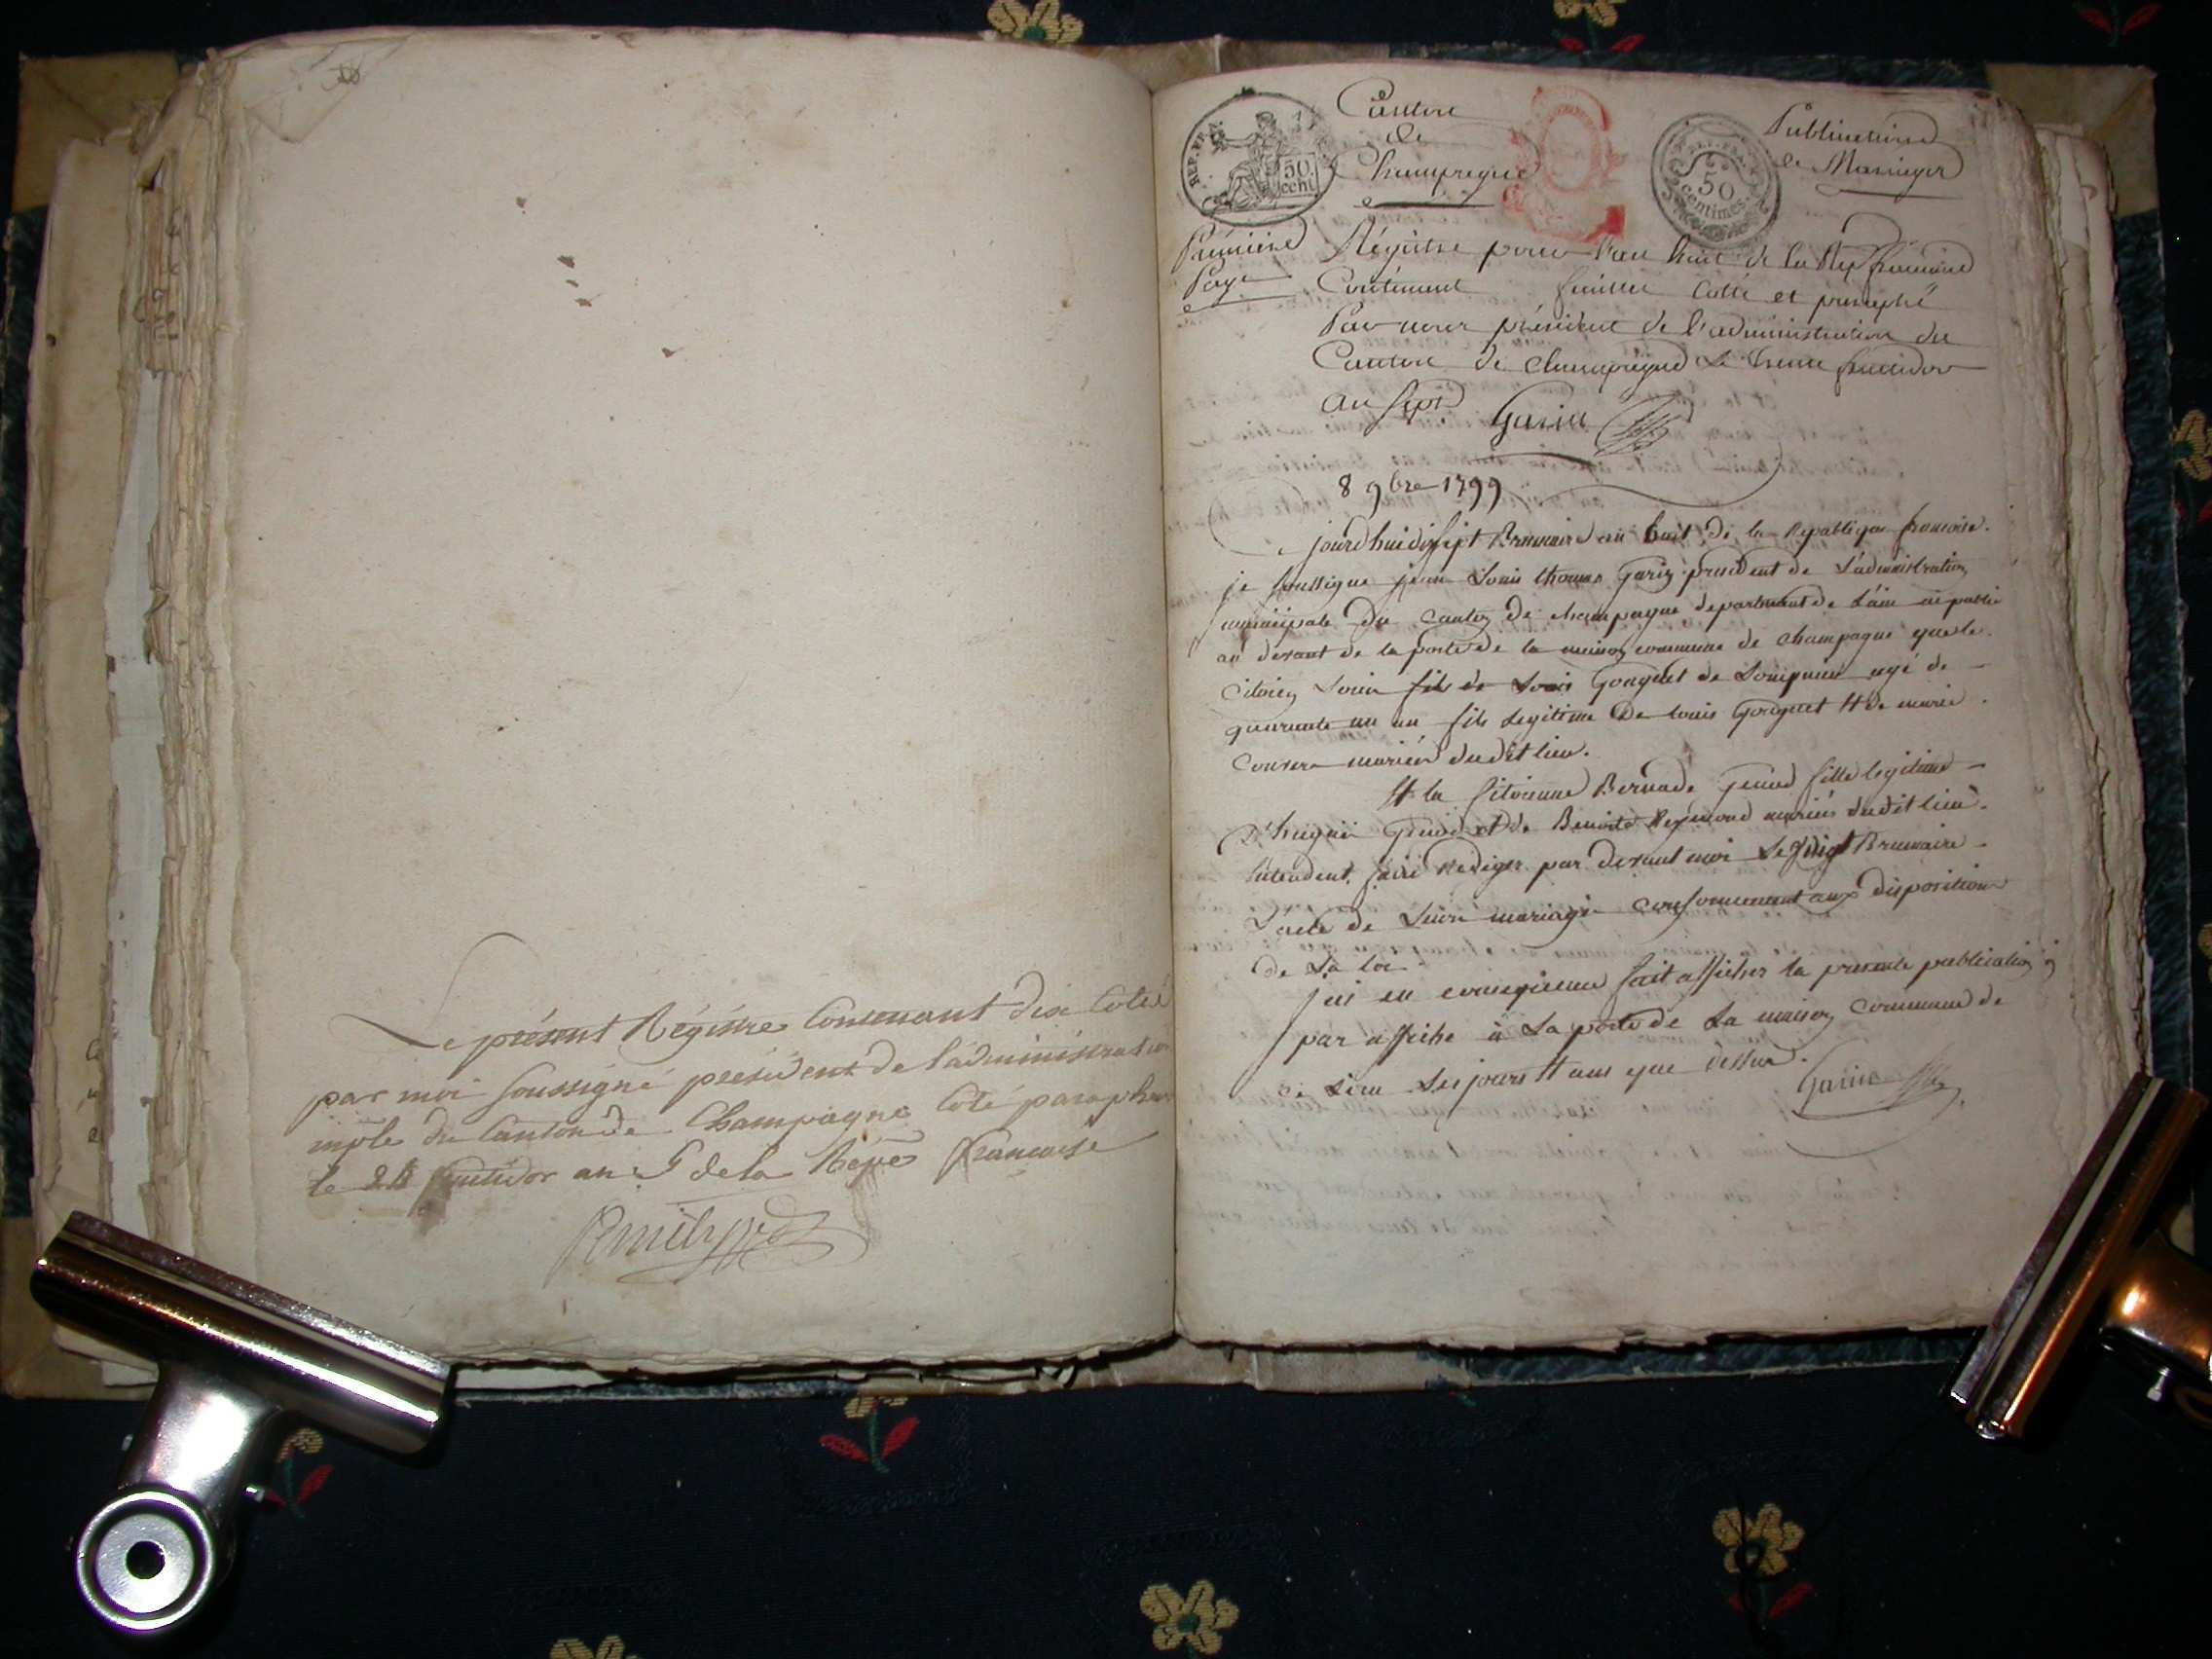 Le présent Régistre Contenant dix Cotés
par moi Soussigné président de l'administration
mple du Canton de Champagne Coté paraphé
le 28 fructidor an 5 de la Répe francaise
REP. FRA.
50
cent
Canton
de
Champagne
REP. FRA.
50
centimes
Publications
de Mariages
Prémière
Page
Régistre pour l'an huit de la Rep francaise
Contenant feuillet Cotté et paraphé
Par nous président de l'administration du
Canton de champagne Le trente fructidor
an sept
Garin
8 9bre 1799
jourd'hui dix sept Brumaire an huit de la Republique francoise.
je soussigne jean Louis thomas Garin president de L'administration
municipale Du canton de champagne departement de L'ain ai publie
au devant de la porte de la maison commune de champagne que le
citoien Louis fils de Louis Gonguet de agé de
quarante un an fils Legitime De louis Gonguet et de marie
mariés dudit lieu.
et la citoienne Bernade fille legitime
D'hugue et de Benoite Reymond mariés dudit lieu.
Entendent faire Rediger par devant moi Le vingt Brumaire
L'acte de Leur mariage conformement aux dispositions
de La loi
j'ai en consequence fait afficher la presente publication
par affiche à La porte de La maison commune de
ce Lieu Les jours et ans que dessus.
Garin